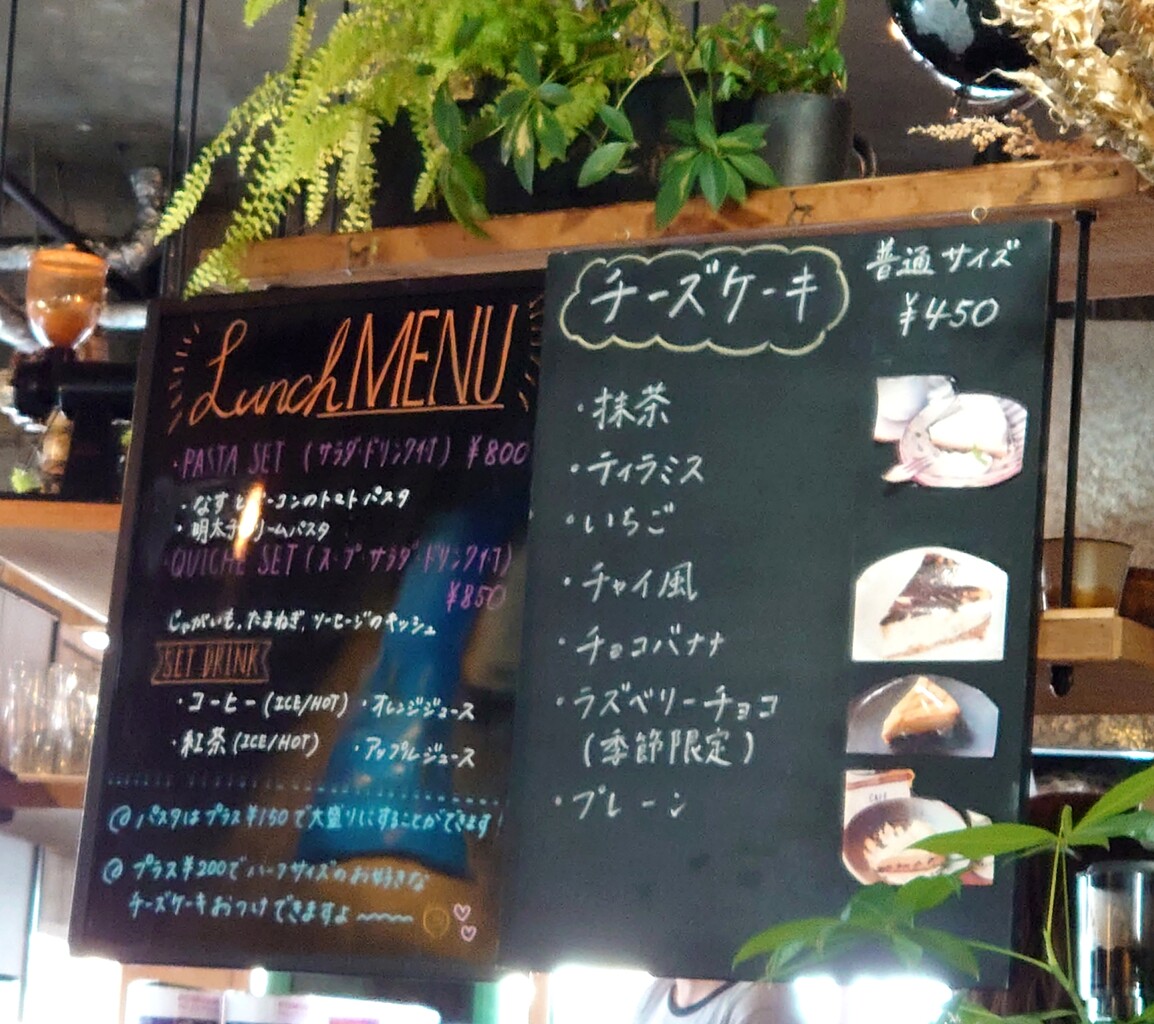 Lunch MENU
・PASTA SET (サラダ・ドリンク付) ¥800
・なすとベーコンのトマトパスタ
・明太子クリームパスタ
・QUICHE SET (スープ・サラダ・ドリンク付)
¥850
じゃがいも、たまねぎ、ソーセージのキッシュ
SET DRINK
・コーヒー(ICE/HOT) ・オレンジジュース
・紅茶(ICE/HOT) ・アップルジュース
@パスタはプラス¥150で大盛りにすることができます!
@プラス¥200でハーフサイズのお好きな
チーズケーキおつけできますよ〜〜〜
チーズケーキ
普通サイズ
¥450
・抹茶
・ティラミス
・いちご
・チャイ風
・チョコバナナ
・ラズベリーチョコ
(季節限定)
・プレーン